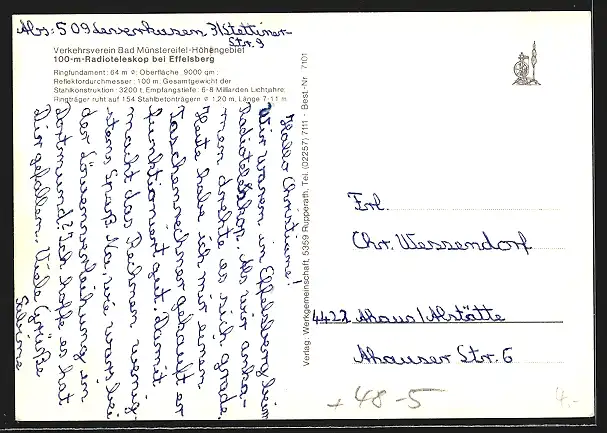 Abs: 509 Leverkusen 3/Stettiner-
Str. 9
Verkehrsverein Bad Münstereifel-Höhengebiet
100-m-Radioteleskop bei Effelsberg
Ringfundament: 64 m ø; Oberfläche 9000 qm;
Reflektordurchmesser: 100 m; Gesamtgewicht der
Stahlkonstruktion: 3200 t; Empfangstiefe: 6-8 Milliarden Lichtjahre;
Ringträger ruht auf 154 Stahlbetonträgern ø 1,20 m, Länge 7-11 m
Hallo Christiane!
Wir waren in Effelsberg beim
Radioteleskop. Als wir anka-
men drehte es sich grade.
Heute habe ich mir einen
Taschenrechner gekauft er
funktioniert gut. Damit
macht das Rechnen wenig-
stens Spaß. Na, wie war's bei
der Löwenverleihung in
Dortmund? Ich hoffe es hat
Dir gefallen. Viele Grüße
Sabine
Verlag: Werkgemeinschaft, 5359 Rupperath, Tel. (02257) 7111 - Best.-Nr. 7101
Frl.
Chr. Wessendorf
4422 Ahaus/Alstätte
Ahauser Str. 6
+48-5
4,-